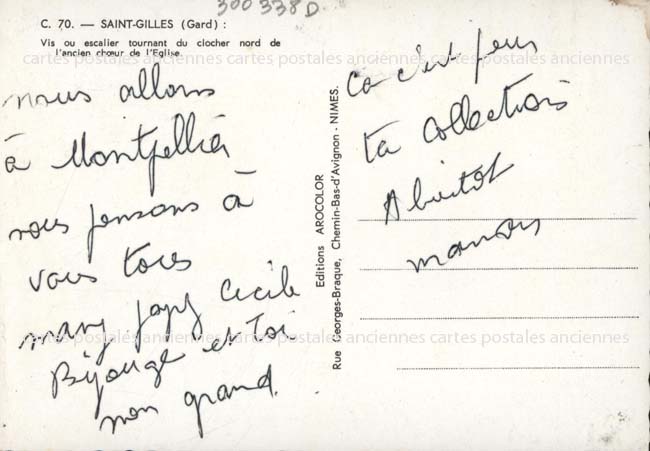 300338D
C. 70. — SAINT-GILLES (Gard) :
Vis ou escalier tournant du clocher nord de
l'ancien chœur de l'Eglise.
cartes postales anciennes cartes postales anciennes cartes postales anciennes
nous allons
à Montpellier
nous pensons à
vous tous
mamy papy Cecile
Bijouge et toi
mon grand.
cartes postales anciennes cartes postales anciennes cartes postales anciennes
Editions AROCOLOR
Rue Georges-Braque, Chemin-Bas-d'Avignon - NIMES.
Ca c'est pour
ta collections
A bientot